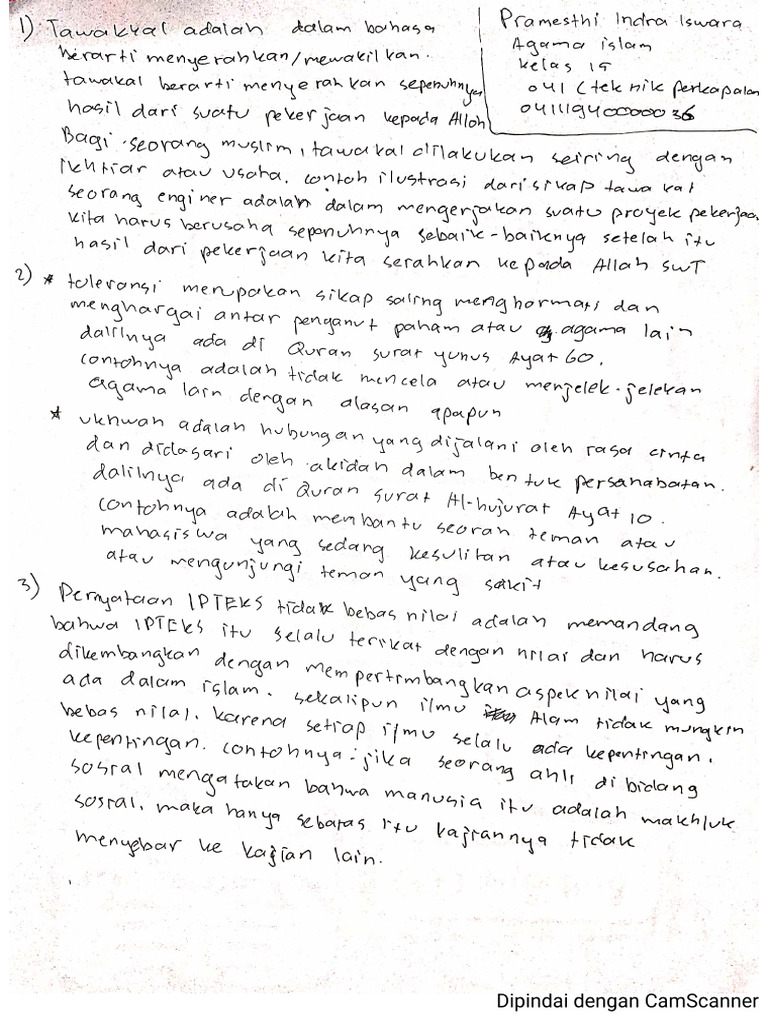 1) Tawakkal adalah dalam bahasa
berarti menyerahkan/mewakilkan.
tawakal berarti menyerahkan sepenuhnya
hasil dari suatu pekerjaan kepada Alloh
Pramesthi Indra Iswara
Agama islam
kelas 15
041 (teknik perkapalan
04111940000036
Bagi seorang muslim, tawakal dilakukan seiring dengan
ikhtiar atau usaha. contoh ilustrasi dari sikap tawakal
seorang enginer adalah dalam mengerjakan suatu proyek pekerjaan
kita harus berusaha sepenuhnya sebaik-baiknya setelah itu
hasil dari pekerjaan kita serahkan kepada Allah SWT
2) * toleransi merupakan sikap saling menghormati dan
menghargai antar penganut paham atau agama lain
dalilnya ada di Quran surat yunus Ayat 60.
contohnya adalah tidak mencela atau menjelek-jelekan
agama lain dengan alasan apapun
* ukhwah adalah hubungan yang dijalani oleh rasa cinta
dan didasari oleh akidah dalam bentuk persahabatan.
dalilnya ada di Quran surat Al-hujurat Ayat 10.
contohnya adalah membantu seoran teman atau
mahasiswa yang sedang kesulitan atau kesusahan.
atau mengunjungi teman yang sakit
3) Pernyataan IPTEKS tidak bebas nilai adalah memandang
bahwa IPTEKS itu selalu terikat dengan nilai dan harus
dikembangkan dengan mempertimbangkan aspek nilai yang
ada dalam islam. sekalipun ilmu Alam tidak mungkin
bebas nilai. karena setiap ilmu selalu ada kepentingan.
kepentingan. contohnya: jika seorang ahli di bidang
sosial mengatakan bahwa manusia itu adalah makhluk
sosial, maka hanya sebatas itu kajiannya tidak
menyebar ke kajian lain.
Dipindai dengan CamScanner